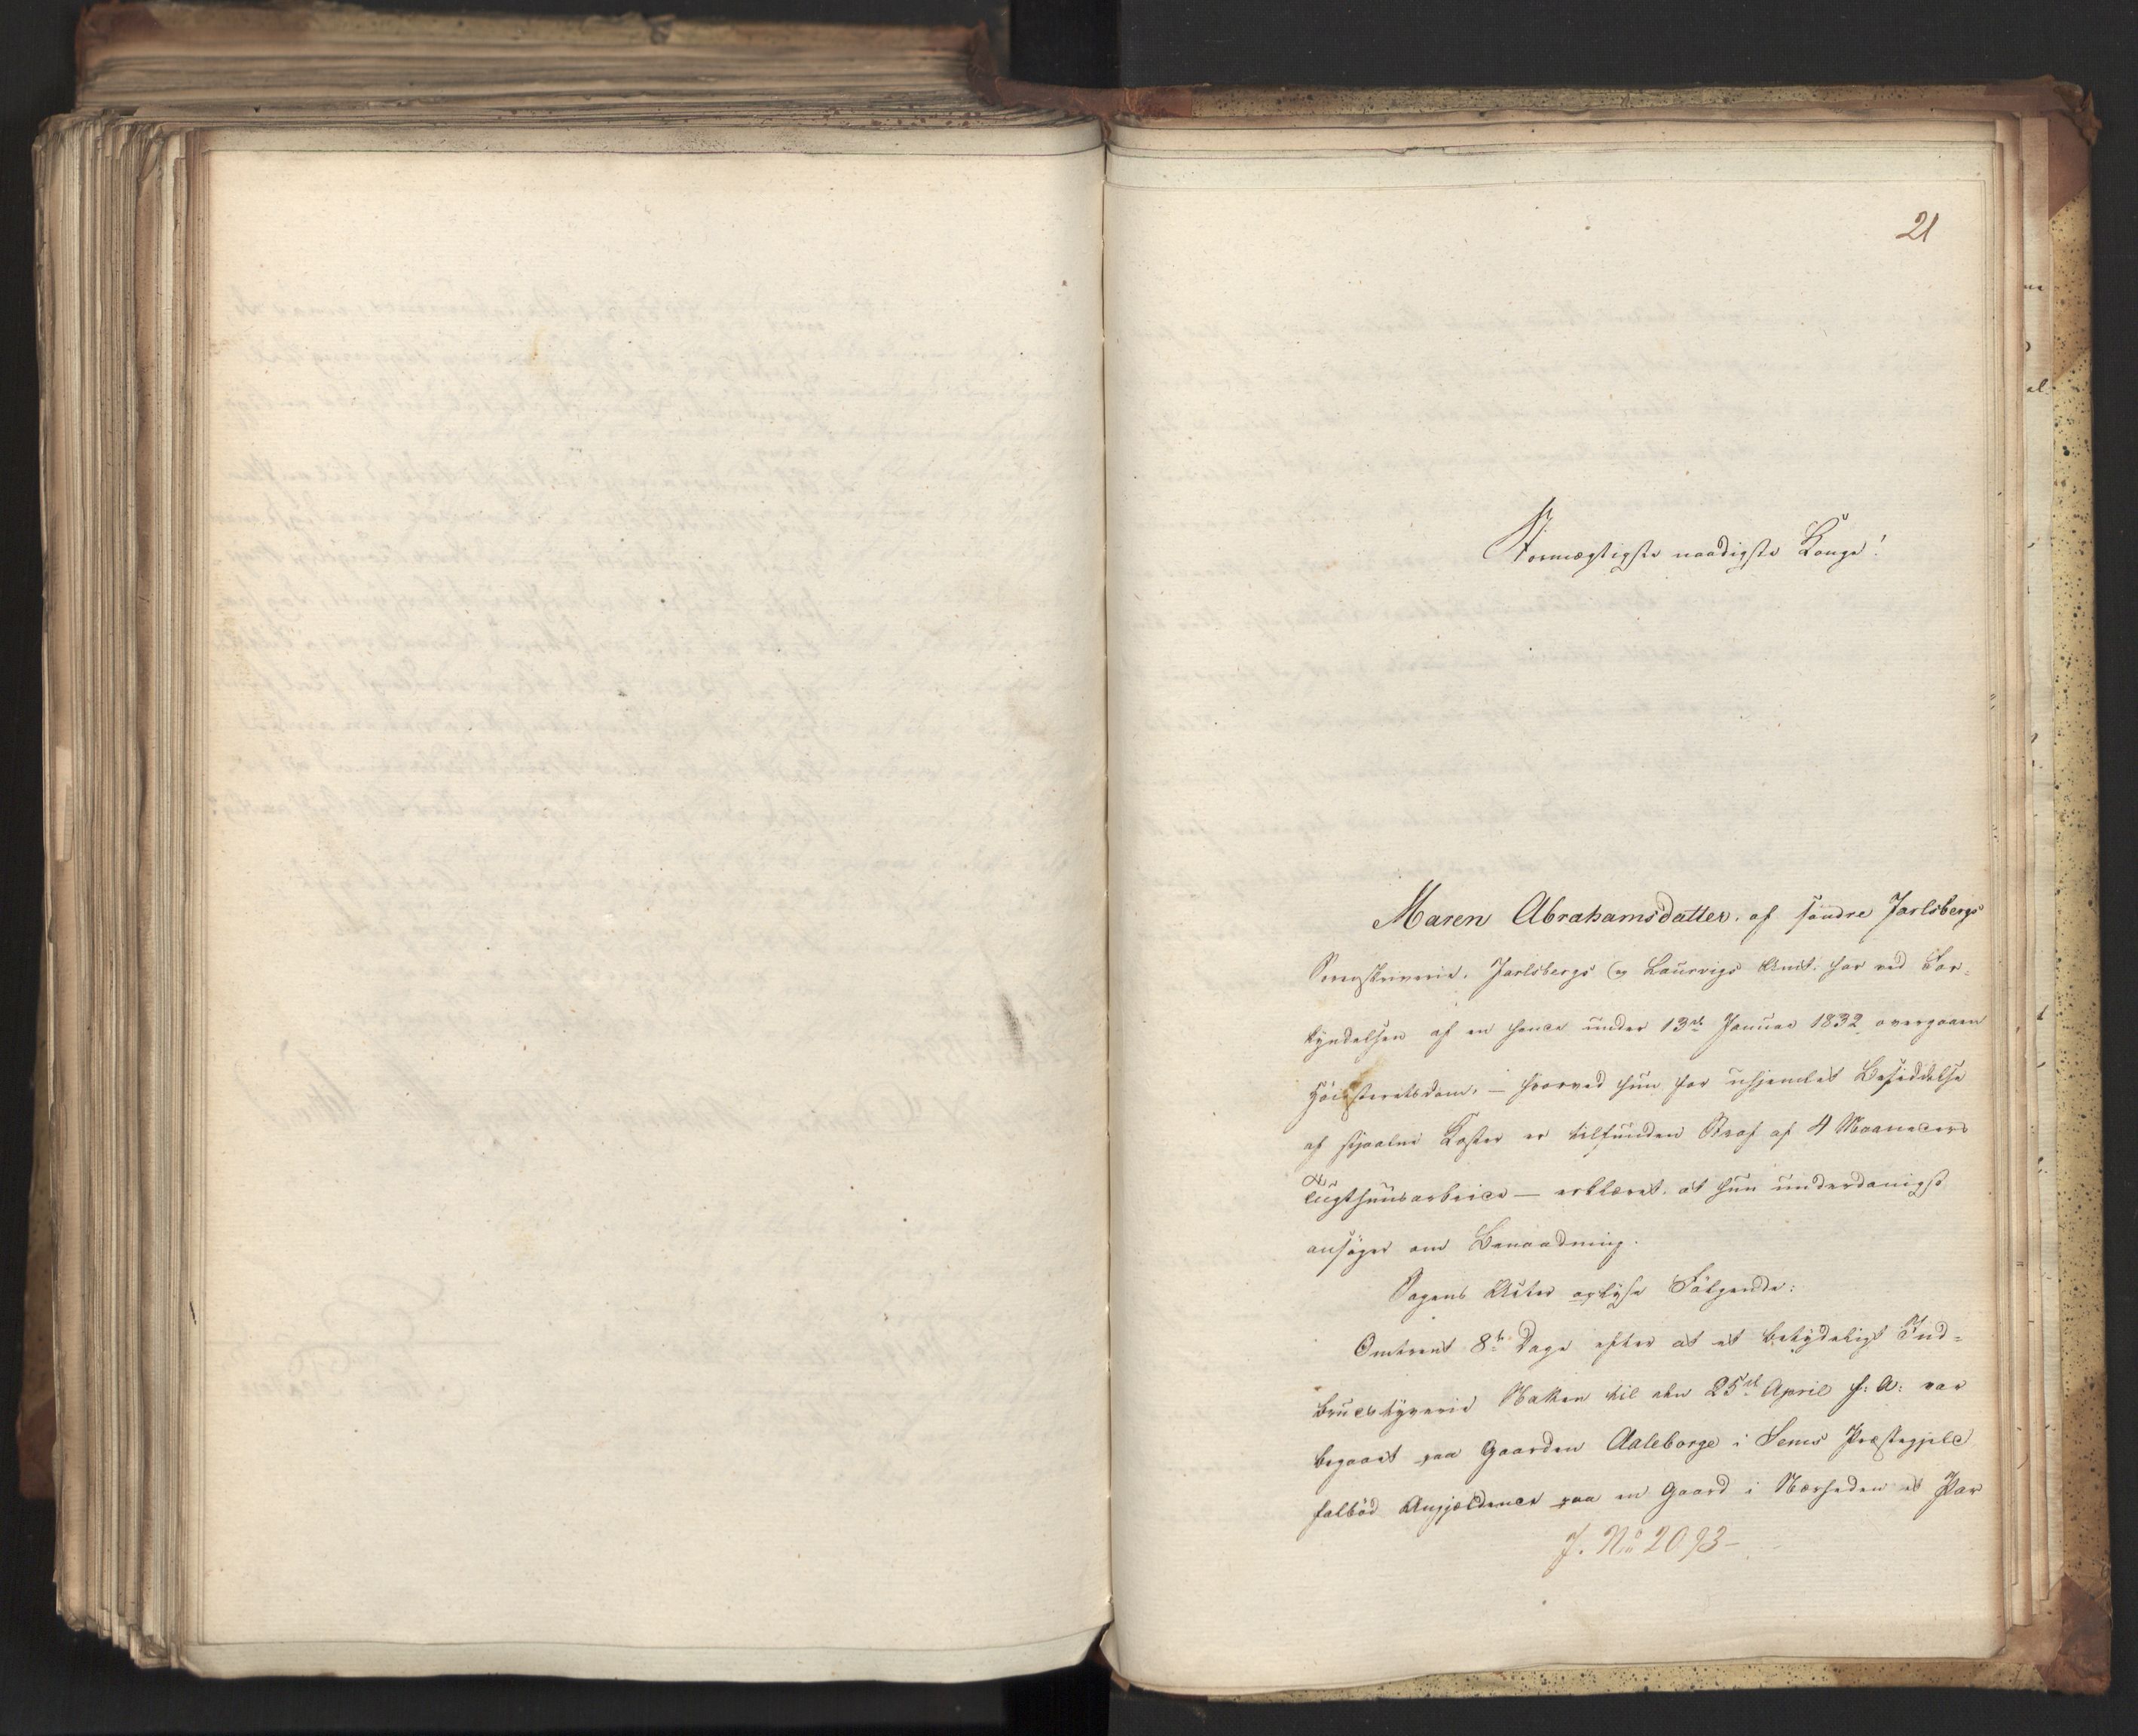 21
Stormægtigste naadigste Konge!
Maren Abrahamsdatter, af søndre Jarlsbergs
Sorenskriverie, Jarlsbergs og Laurvigs Amt, har ved For-
kyndelsen af en hende under 13de Januar 1832 overgaaen
Höiesteretsdom, – hvorved hun for uhjemlet Besiddelse
af stjaalne Koster er tilfunden Straf af 4 Maaneders
Tugthuusarbeide – erklæret, at hun underdanigst
ansöger om Benaadning.
Sagens Akter oplyse Fölgende:
Omtrent 8te Dage efter at et betydeligt Ind-
brudstyverie Natten til den 25de April f: A: var
begaaet paa Gaarden Aaleborge i Sems Præstegjeld
falböd Angjeldende paa en Gaard i Nærheden et Par
J. No 2093-